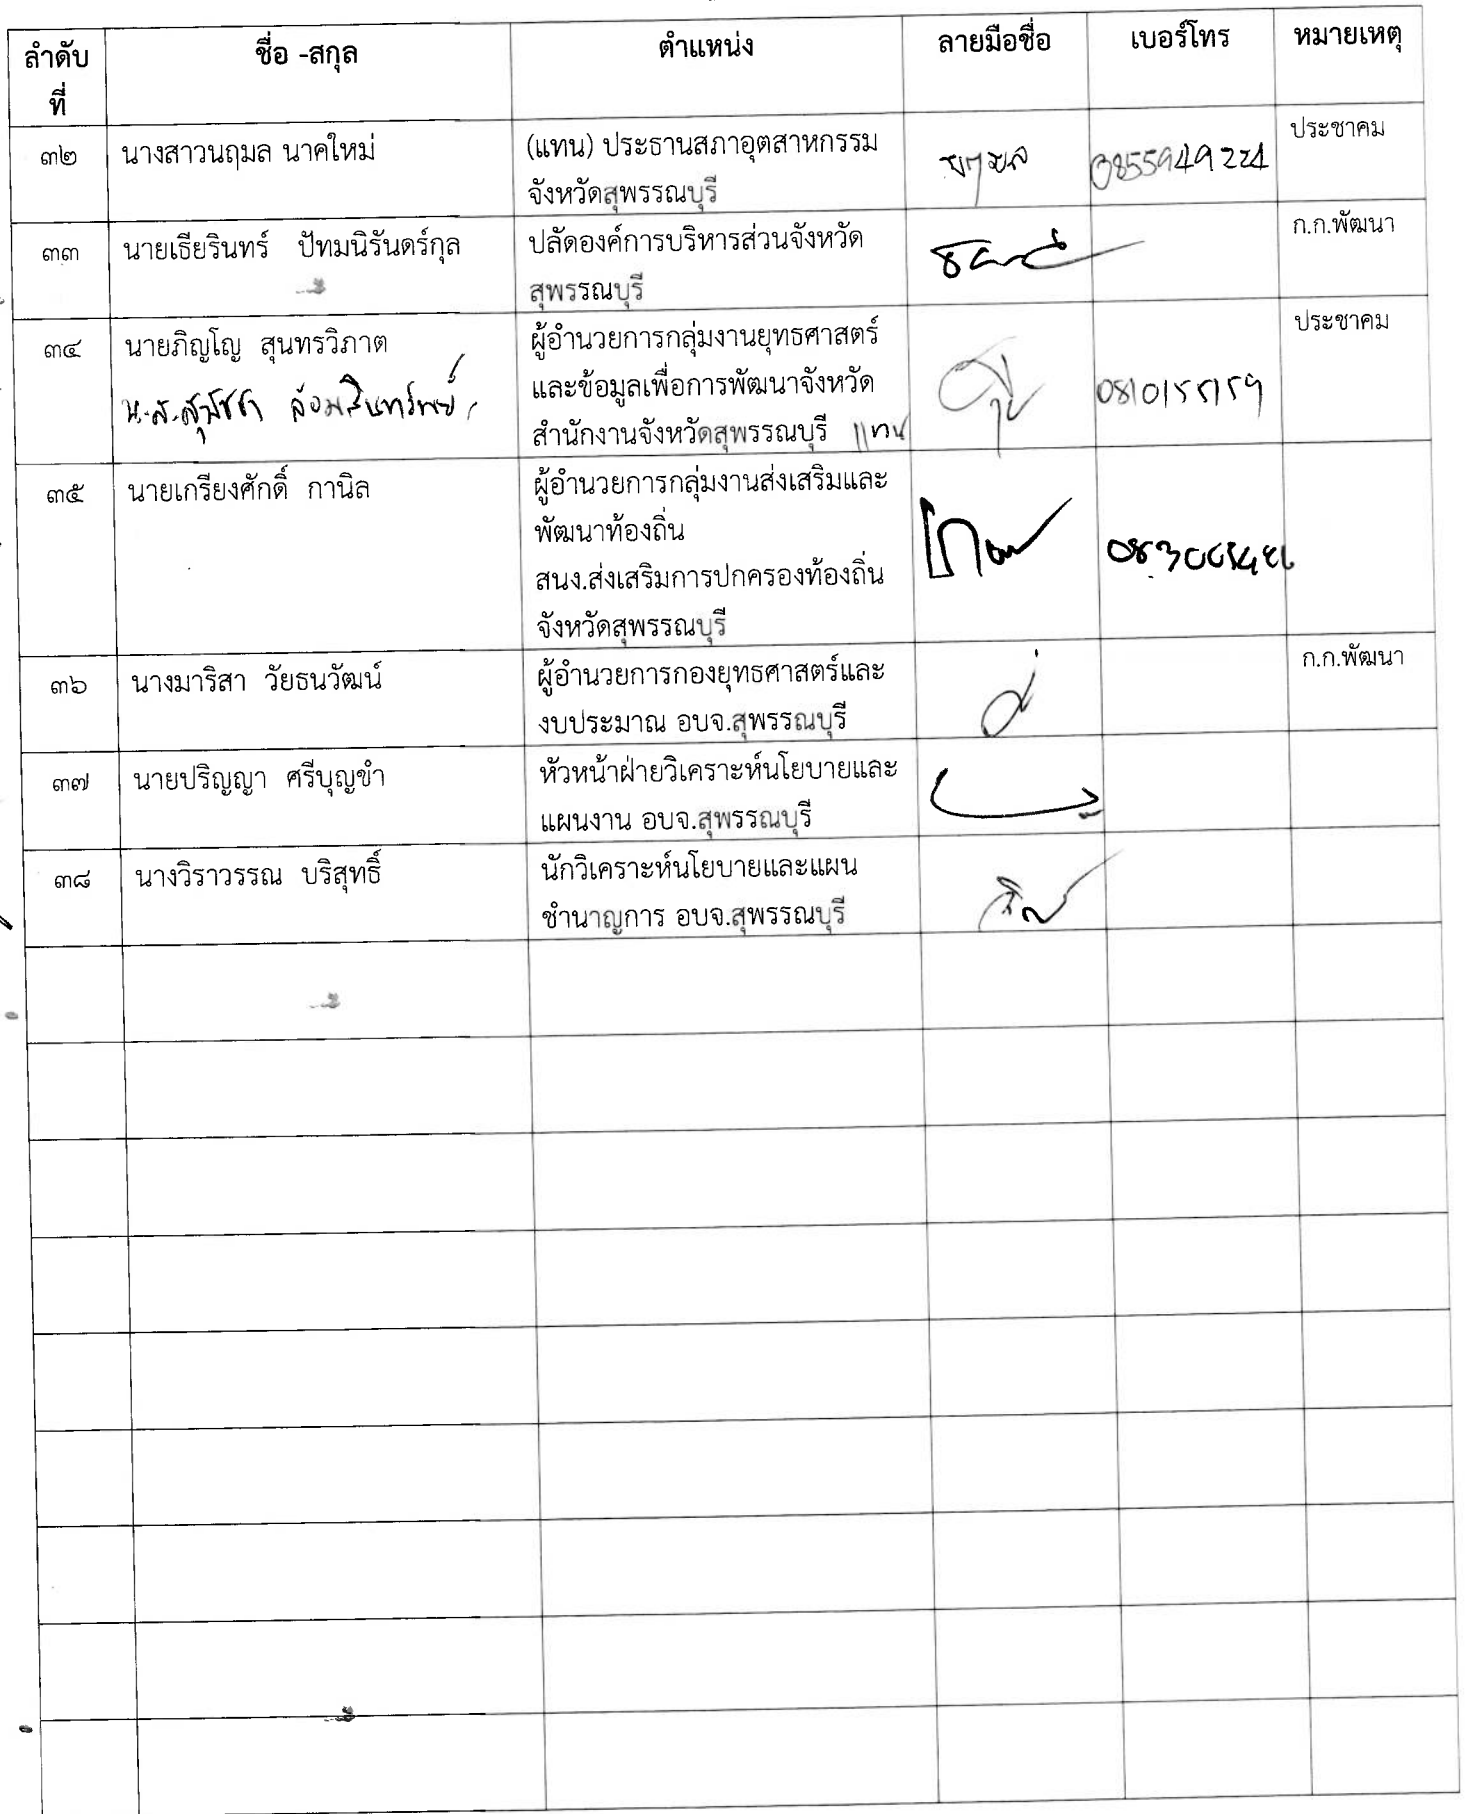 ลำดับ
ที่
ชื่อ -สกุล
ตำแหน่ง
ลายมือชื่อ
เบอร์โทร
หมายเหตุ
๓๒
นางสาวนฤมล นาคใหม่
(แทน) ประธานสภาอุตสาหกรรม
จังหวัดสุพรรณบุรี
นฤมล
0855949224
ประชาคม
๓๓
นายเธียรินทร์ ปัทมนิรันดร์กุล
ปลัดองค์การบริหารส่วนจังหวัด
สุพรรณบุรี
ก.ก.พัฒนา
๓๔
นายภิญโญ สุนทรวิภาต
น.ส.
ผู้อำนวยการกลุ่มงานยุทธศาสตร์
และข้อมูลเพื่อการพัฒนาจังหวัด
สำนักงานจังหวัดสุพรรณบุรี แทน
0810155159
ประชาคม
๓๕
นายเกรียงศักดิ์ กานิล
ผู้อำนวยการกลุ่มงานส่งเสริมและ
พัฒนาท้องถิ่น
สนง.ส่งเสริมการปกครองท้องถิ่น
จังหวัดสุพรรณบุรี
๓๖
นางมาริสา วัยธนวัฒน์
ผู้อำนวยการกองยุทธศาสตร์และ
งบประมาณ อบจ.สุพรรณบุรี
ก.ก.พัฒนา
๓๗
นายปริญญา ศรีบุญขำ
หัวหน้าฝ่ายวิเคราะห์นโยบายและ
แผนงาน อบจ.สุพรรณบุรี
๓๘
นางวิราวรรณ บริสุทธิ์
นักวิเคราะห์นโยบายและแผน
ชำนาญการ อบจ.สุพรรณบุรี